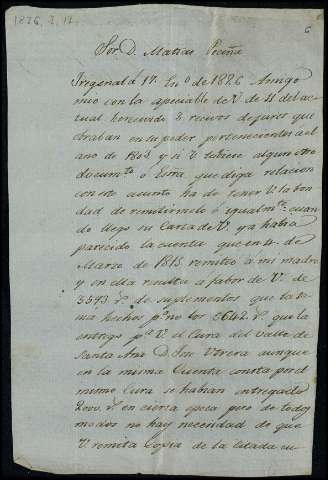 1826, 1, 17.
6
Sor. D. Matias
Fregenal 17. En.o de 1826 Amigo
mio con la apreciable de V. de 11 del ac-
tual he recivido 3 recivos de juros que
obraban en su poder pertenecientes a el
año de 1804 y si V. tubiere algun otro
docum.to ó letra que diga relacion
con este asunto ha de tener V. la bon-
dad de remitirmelo ó igualm.te cuan-
do llego su Carta de V. ya habia
parecido la cuenta que en 4 de
Marzo de 1815 remitio a mi madre
y en ella resulta a fabor de V. de
3593 r.s de suplementos que la te-
nia hechos p.o no los 6642 r.s que la
entrego p.r V. el Cura del Valle de
Santa Ana D. Jose Utrera aunque
en la misma Cuenta consta por el
mismo Cura se habian entregado
2000 r.s en cierta epoca pero de todos
modos no hay necesidad de que
V. remita Copia de la citada cu-